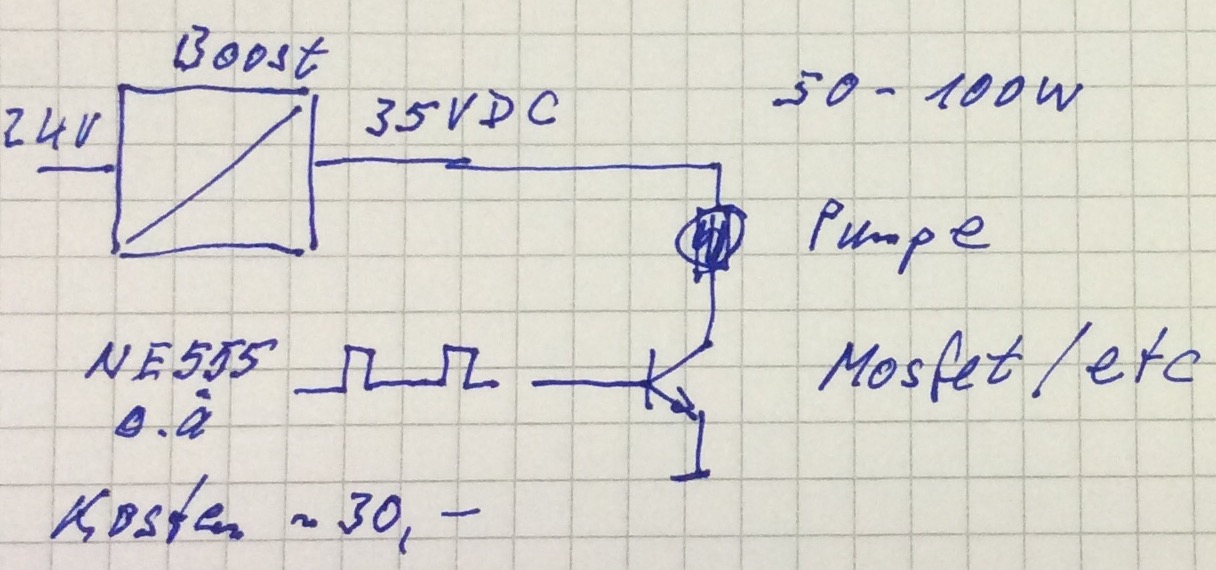 Boost
24V
35VDC
50-100W
Pumpe
NE555
o.ä
Mosfet/etc
Kosten ~30,-